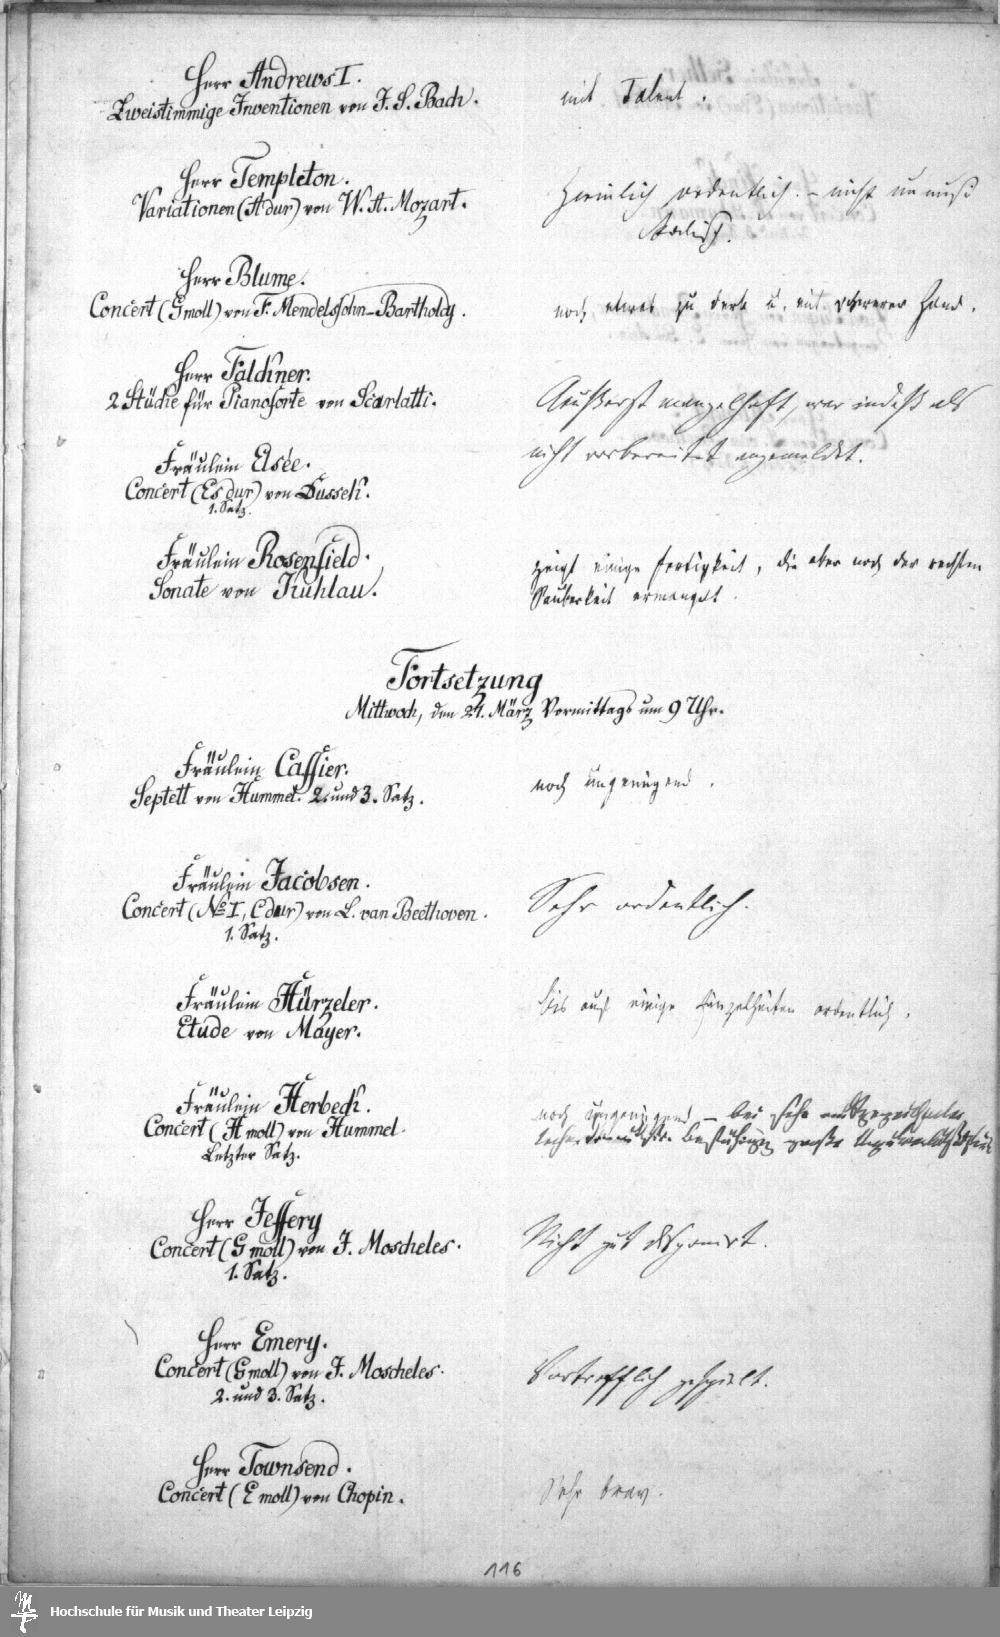 Herr Andrews I.
Zweistimmige Inventionen von J. S. Bach.
mit Talent.
Herr Templeton.
Variationen (A dur) von W. A. Mozart.
Ziemlich ordentlich. – nicht unmusi-
kalisch.
Herr Blume.
Concert (G moll) von F. Mendelssohn-Bartholdy.
noch etwas zu derb u. mit schwerer Hand.
Herr Falckner.
2 Stücke für Pianoforte von Scarlatti.
Äußerst mangelhaft, war indeß als
nicht vorbereitet angemeldet.
Fräulein Elsée.
Concert (Es dur) von Dussek.
1. Satz.
Fräulein Rosenfield.
Sonate von Kuhlau.
zeigt einige Fertigkeit, die aber noch der rechten
Sauberkeit ermangelt.
Fortsetzung
Mittwoch, den 24. März Vormittags um 9 Uhr.
Fräulein Cassier.
Septett von Hummel. 2. und 3. Satz.
noch ungenügend.
Fräulein Jacobsen.
Concert (No I, C dur) von L. van Beethoven.
1. Satz.
Sehr ordentlich.
Fräulein Hürzeler.
Etude von Mayer.
bis auf einige Einzelheiten ordentlich.
Fräulein Herbeck.
Concert (H moll) von Hummel.
Letzter Satz.
noch ungenügend – bei sehr
große
Herr Jeffery
Concert (G moll) von J. Moscheles.
1. Satz.
Nicht gut disponirt.
Herr Emery.
Concert (G moll) von J. Moscheles.
2. und 3. Satz.
Vortrefflich gespielt.
Herr Townsend.
Concert (E moll) von Chopin.
Sehr brav.
116
Hochschule für Musik und Theater Leipzig